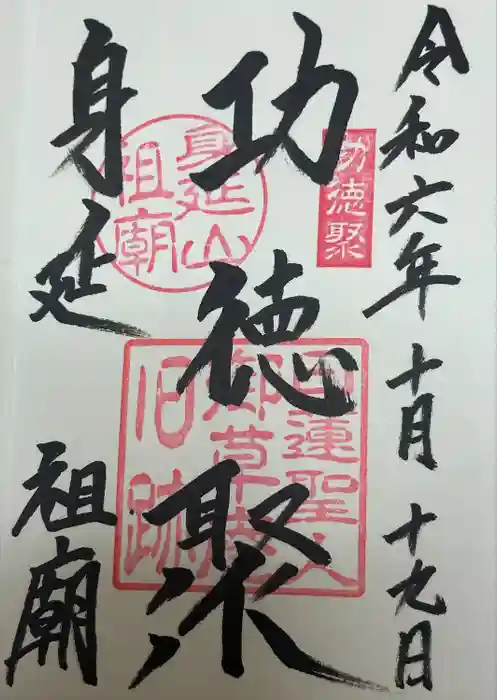 令和六年十月十九日
功徳聚
功徳聚
身延
祖廟
身延山
祖廟
日蓮聖人
御草庵
旧跡